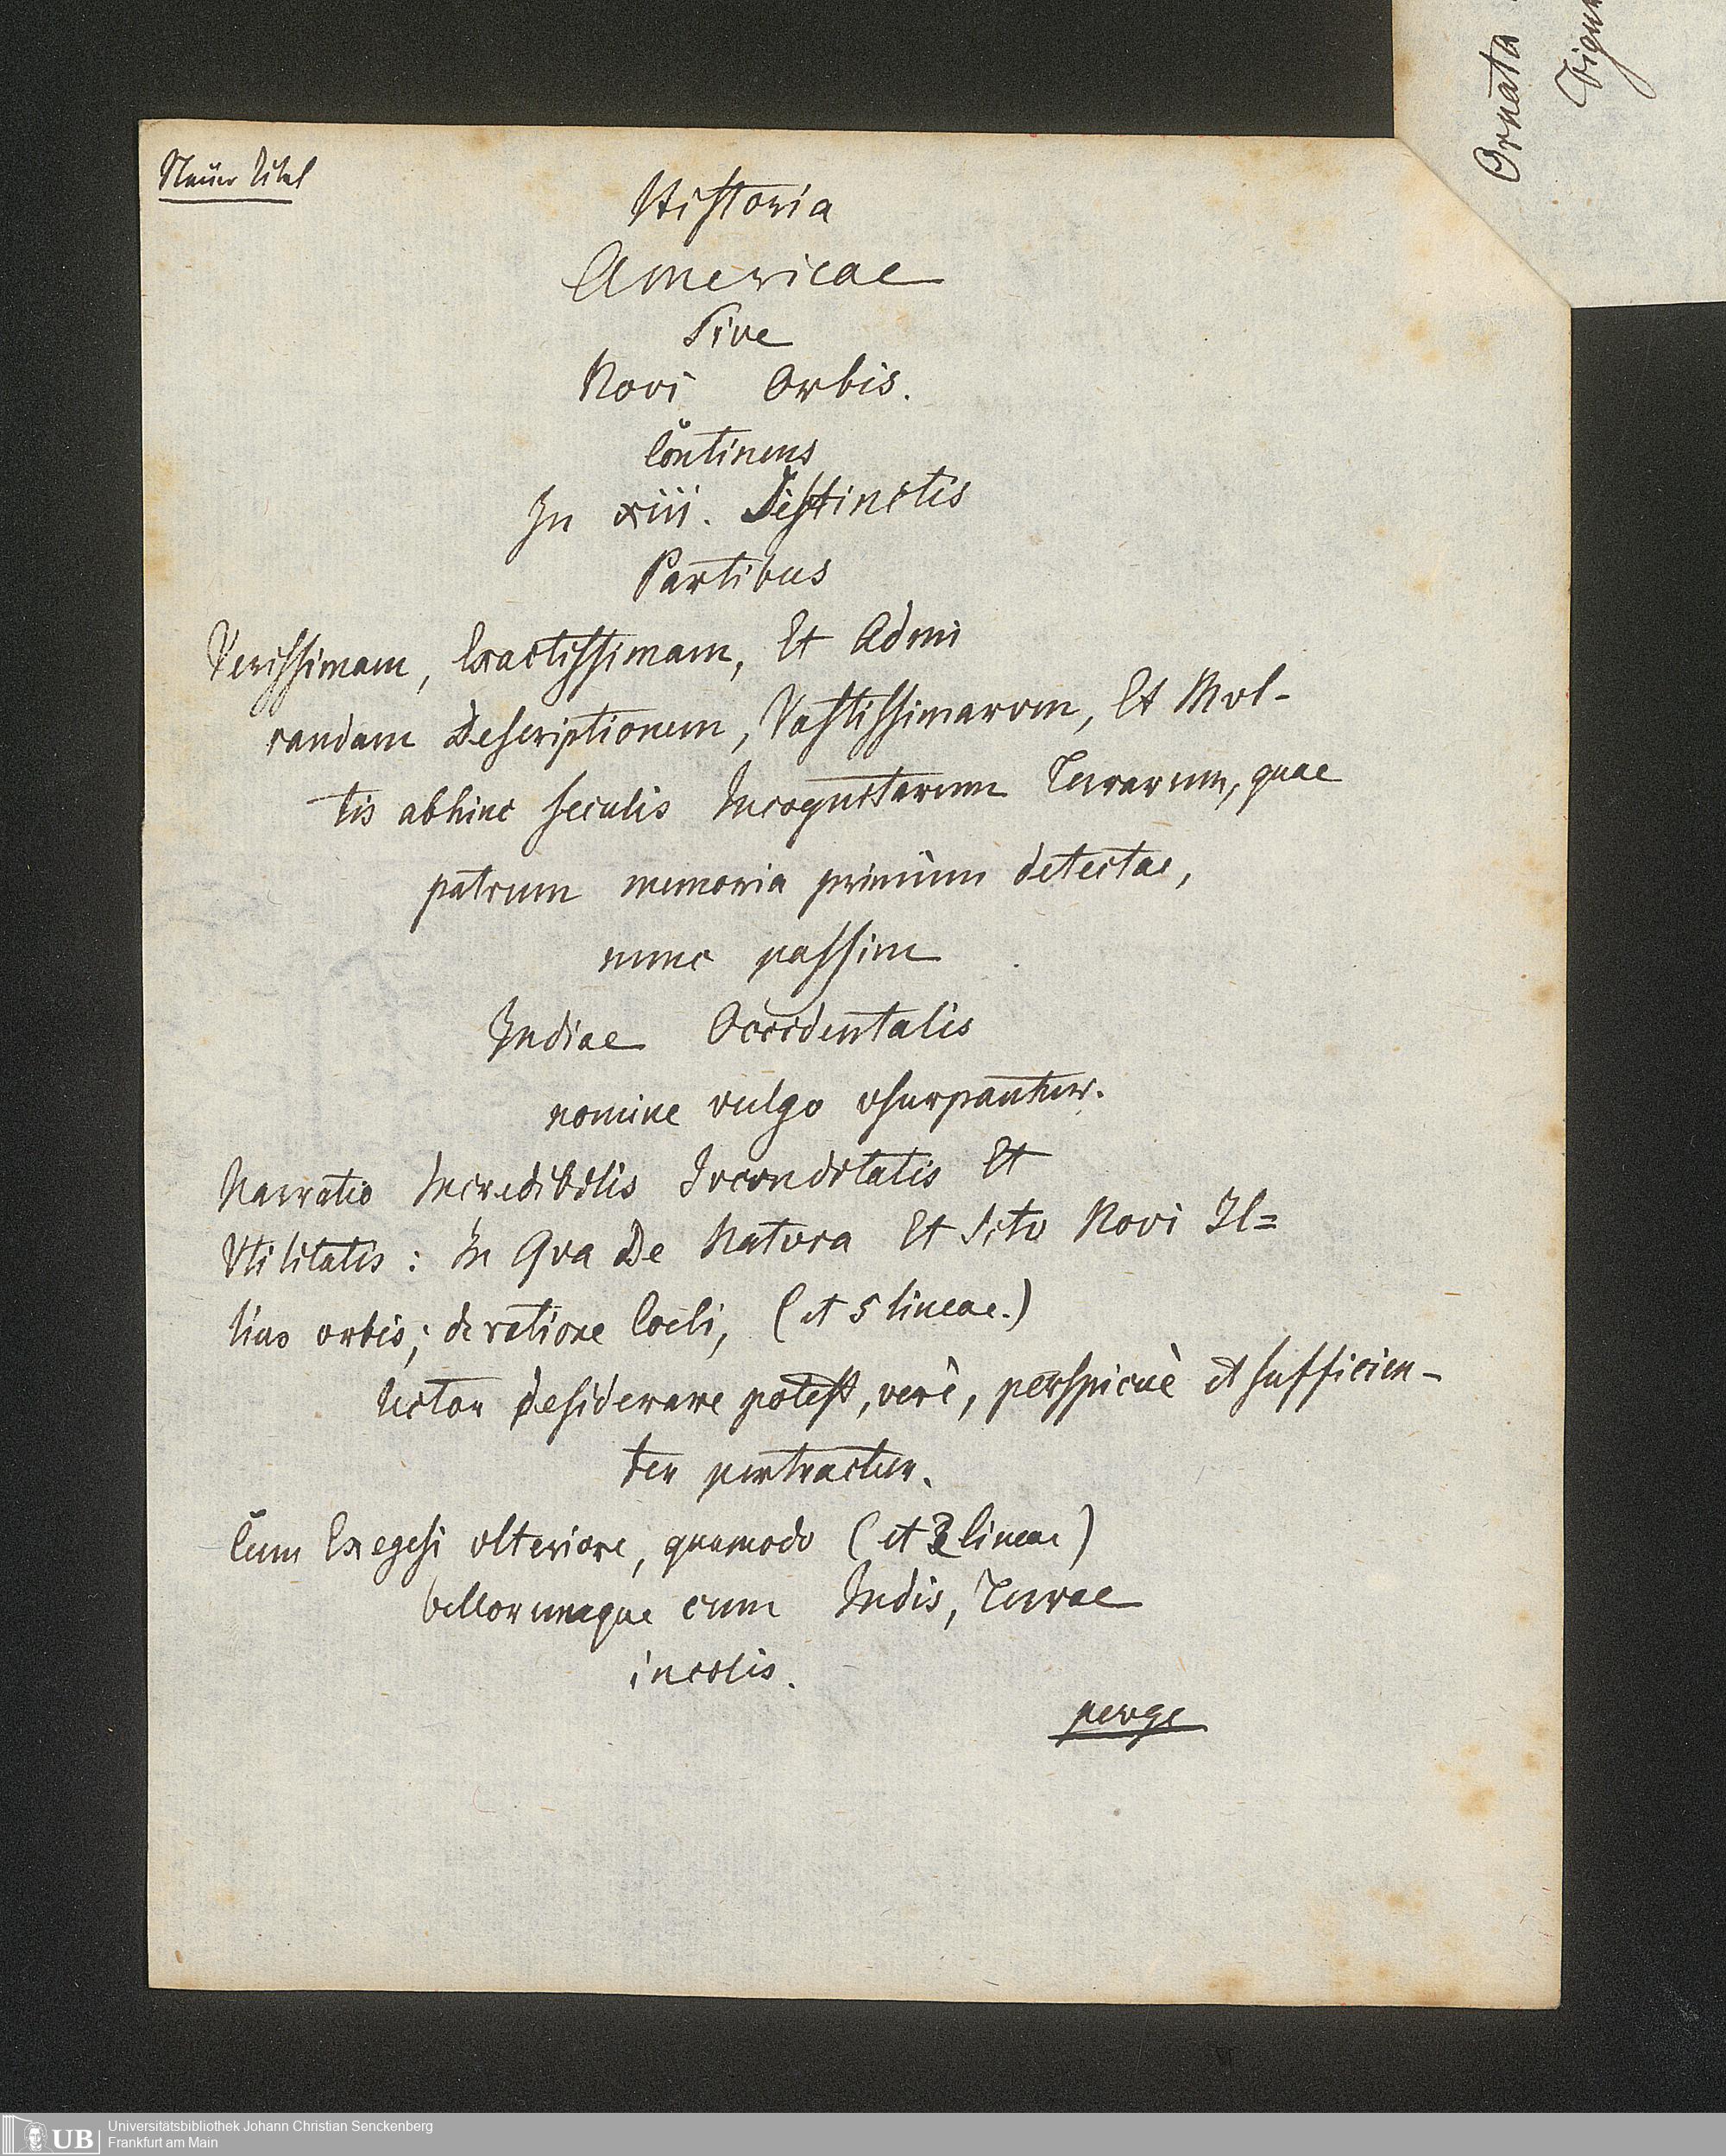 Neuer Titel
Historia
Americae
Sive
Novi Orbis.
Continens
In xiii. Distinctis
Partibus
Verissimam, Exactissimam, Et Admi
randam Descriptionem, Vastissimarvm, Et Mvl-
tis abhinc seculis Incognitarum Terrarum, quae
patrum memoria primùm detectae,
nunc passim
Indiae Occidentalis
nomine vulgo vsurpantur.
Narratio Incredibilis Iocvnditatis Et
Vtilitatis: In Qva De Natvra Et Sitv Novi Il=
lius orbis; de ratione Coeli, (et 5 lineae.)
Lector desiderare potest, verè, perspicuè et sufficien-
ter pertractur.
Cum Exegesi vlteriore, quomodo (et 3 lineae)
bellorumque cum Indis, Terrae
incolis.
perge
Ornata
Figur
UB
Universitätsbibliothek Johann Christian Senckenberg
Frankfurt am Main